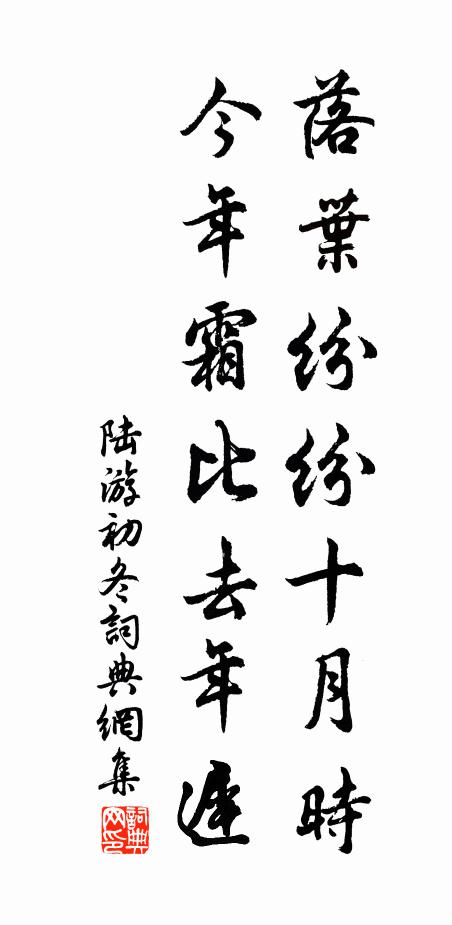 落葉紛紛十月時
今年霜比去年遲
陆游初冬詞典網集
詞典網印